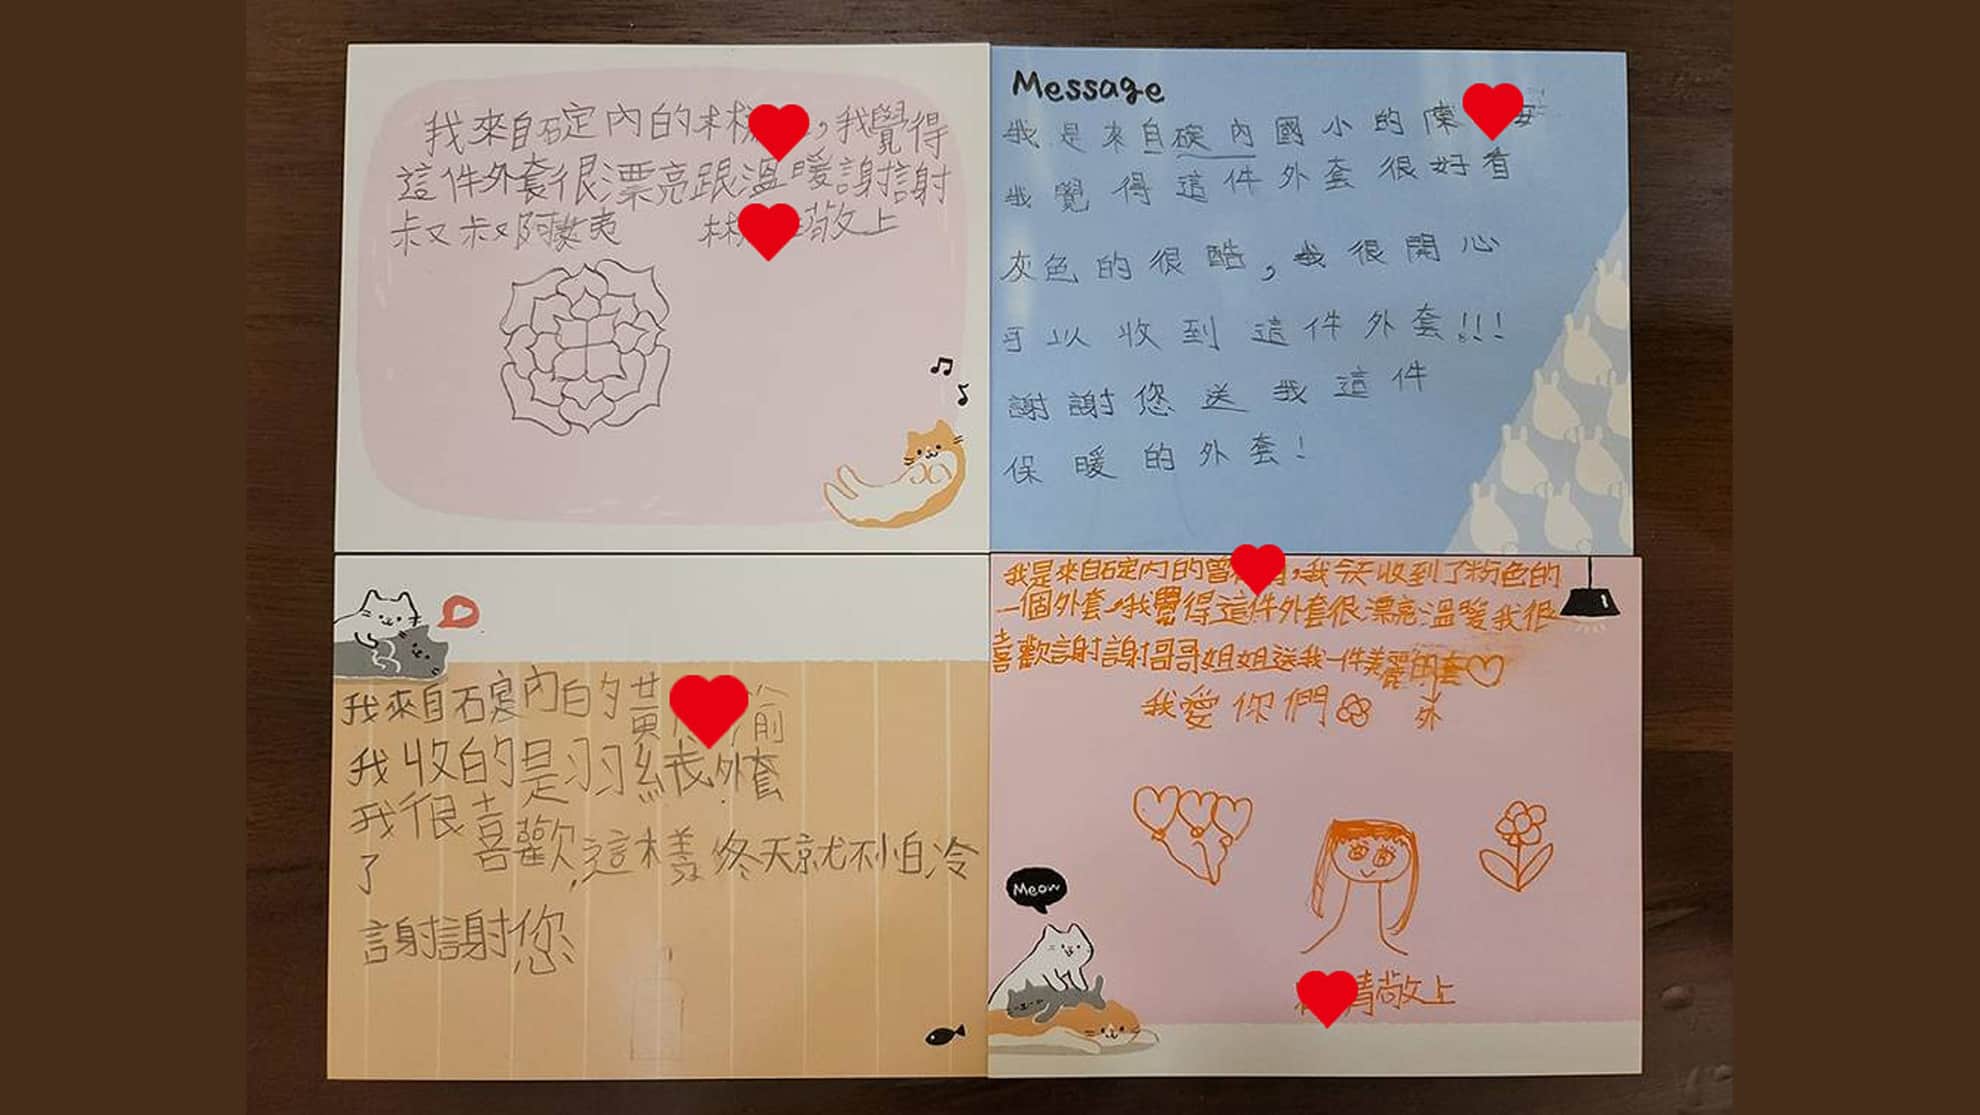 我來自碇內的林，我覺得
這件外套很漂亮跟溫暖謝謝
叔叔阿姨 林敬上
Message
我是來自碇內國小的陳
我覺得這件外套很好看
灰色的很酷，我很開心
可以收到這件外套!!!
謝謝您送我這件
保暖的外套!
我來自碇內的黃
我收的是羽絨外套
我很喜歡,這樣冬天就不怕冷
了
謝謝您
我是來自碇內的曾，我今天收到了粉色的
一個外套，我覺得這件外套很漂亮溫暖我很
喜歡謝謝哥哥姐姐送我一件美麗的套♡
外
我愛你們
Meow
晴敬上